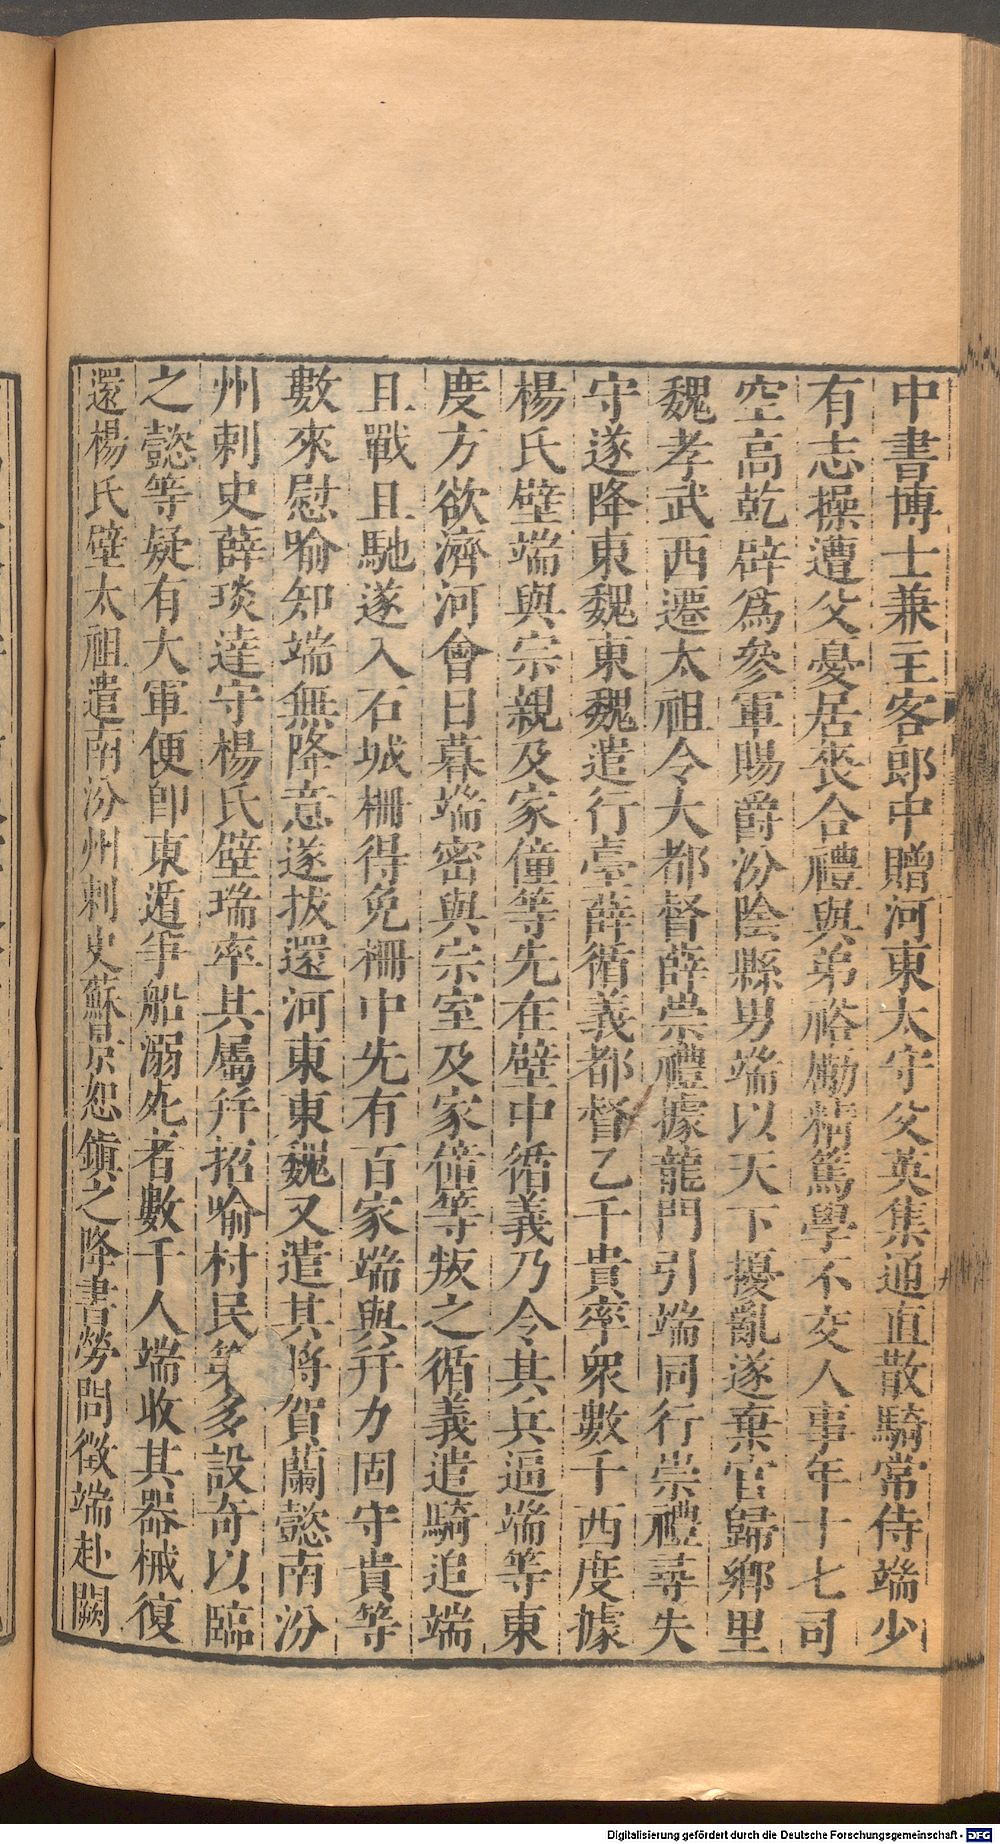 中書博士兼主客郎中贈河東太守父英集通直散騎常侍端少
有志操遭父憂居喪合禮與弟裕勵精篤學不交人事年十七司
空高乾辟爲參軍賜爵汾陰縣男端以天下擾亂遂棄官歸鄉里
魏孝武西遷太祖令大都督薛崇禮據龍門引端同行崇禮尋失
守遂降東魏東魏遣行臺薛循義都督乙千貴率衆數千西度據
楊氏壁端與宗親及家僮等先在壁中循義乃令其兵逼端等東
度方欲濟河會日暮端密與宗室及家僮等叛之循義遣騎追端
且戰且馳遂入石城柵得免柵中先有百家端與幷力固守貴等
數來慰喻知端無降意遂拔還河東東魏又遣其將賀蘭懿南汾
州刺史薛琰達守楊氏壁瑞率其屬幷招喻村民等多設奇以臨
之懿等疑有大軍便卽東遁爭船溺死者數千人端收其器械復
還楊氏壁太祖遣南汾州刺史蘇景恕鎮之降書勞問徵端赴闕
Digitalisierung gefördert durch die Deutsche Forschungsgemeinschaft - DFG